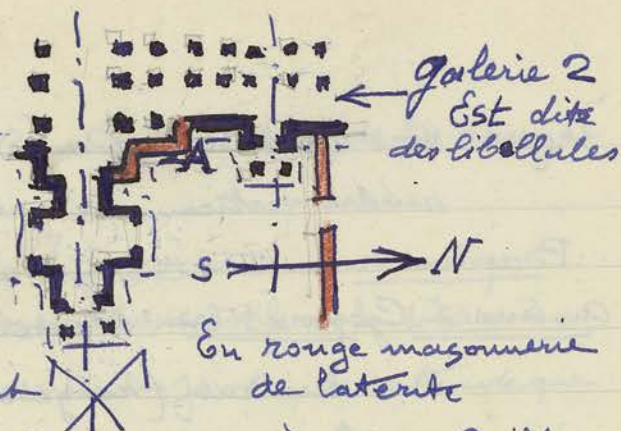 galerie 2
Est dite
des libellules
A
S N
En rouge maçonnerie
de laterite